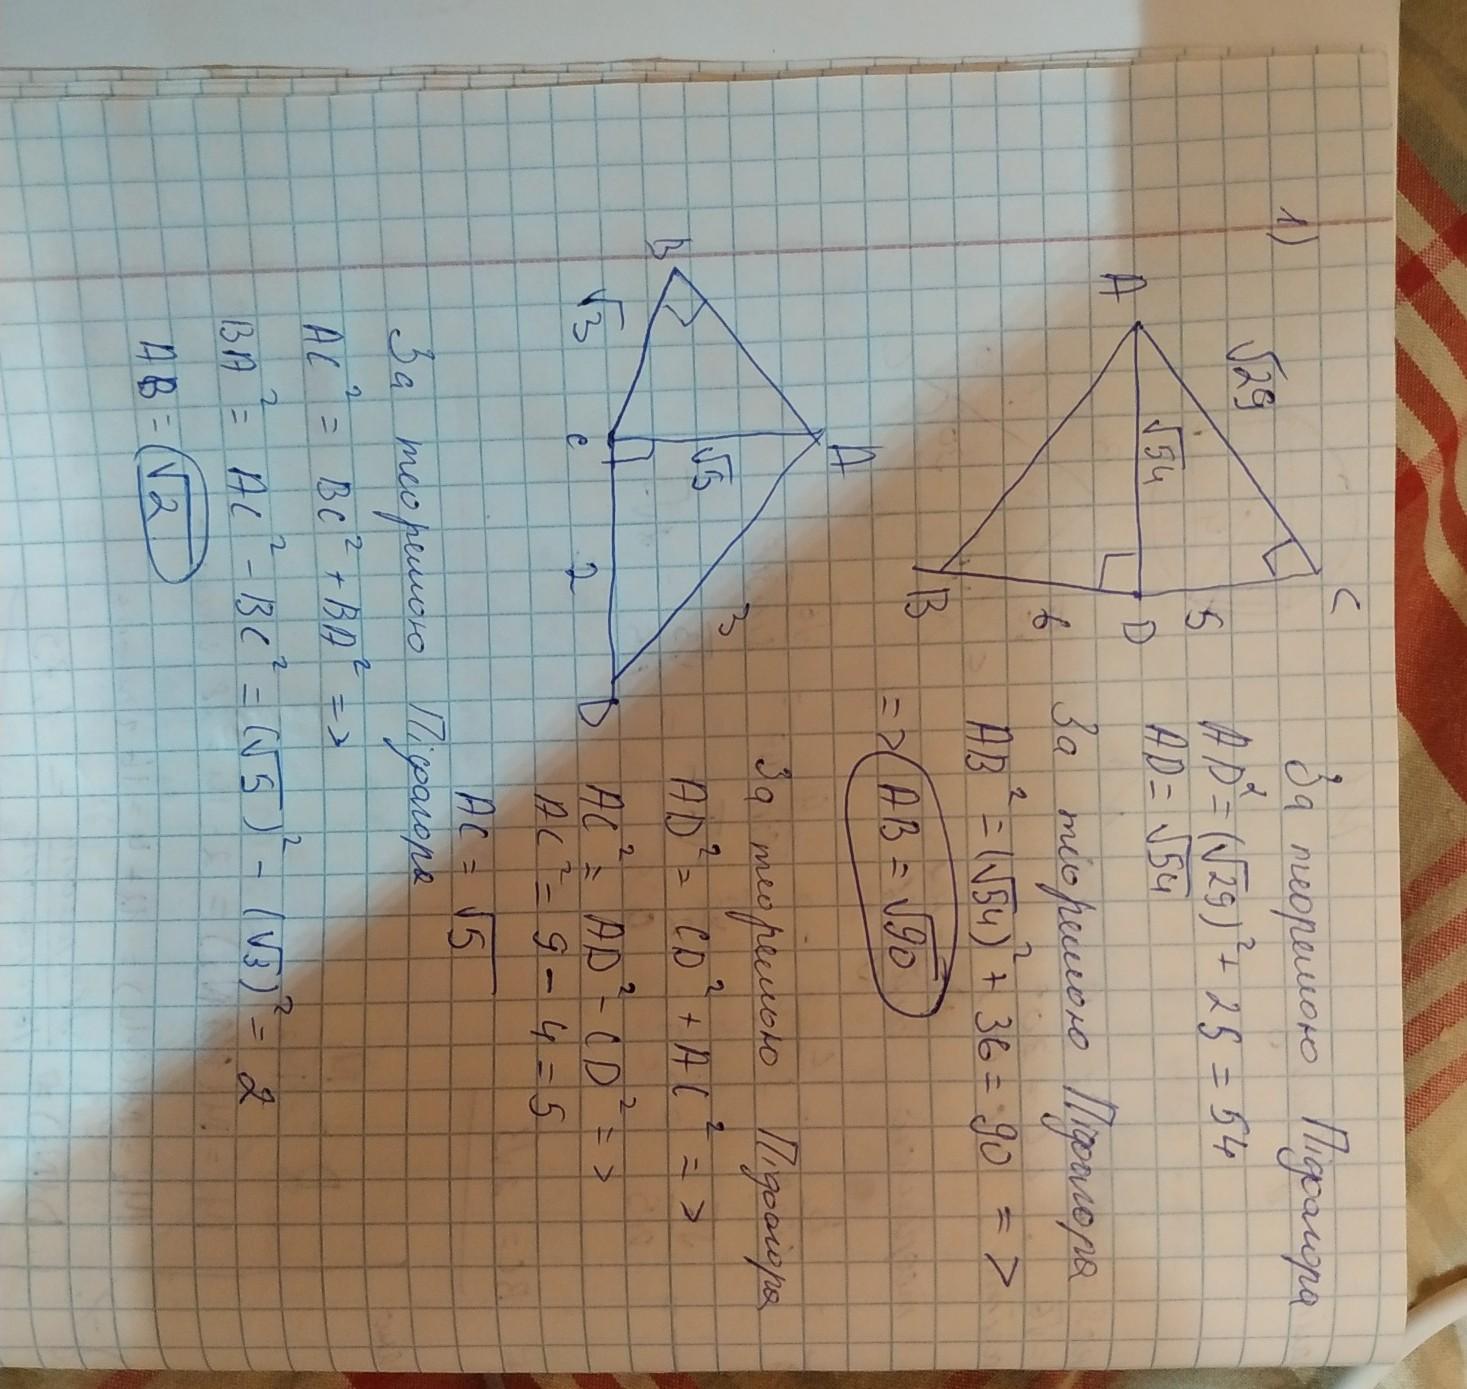 1)
A
√29
C
√54
5
D
6
B
За теоремою Піфагора
AD² = (√29)² + 25 = 54
AD = √54
За теоремою Піфагора
AB² = (√54)² + 36 = 90 =>
=> AB = √90
A
B
√3
√5
3
C
2
D
За теоремою Піфагора
AD² = CD² + AC² =>
AC² = AD² - CD² =>
AC² = 9 - 4 = 5
AC = √5
За теоремою Піфагора
AC² = BC² + BA² =>
BA² = AC² - BC² = (√5)² - (√3)² = 2
AB = √2